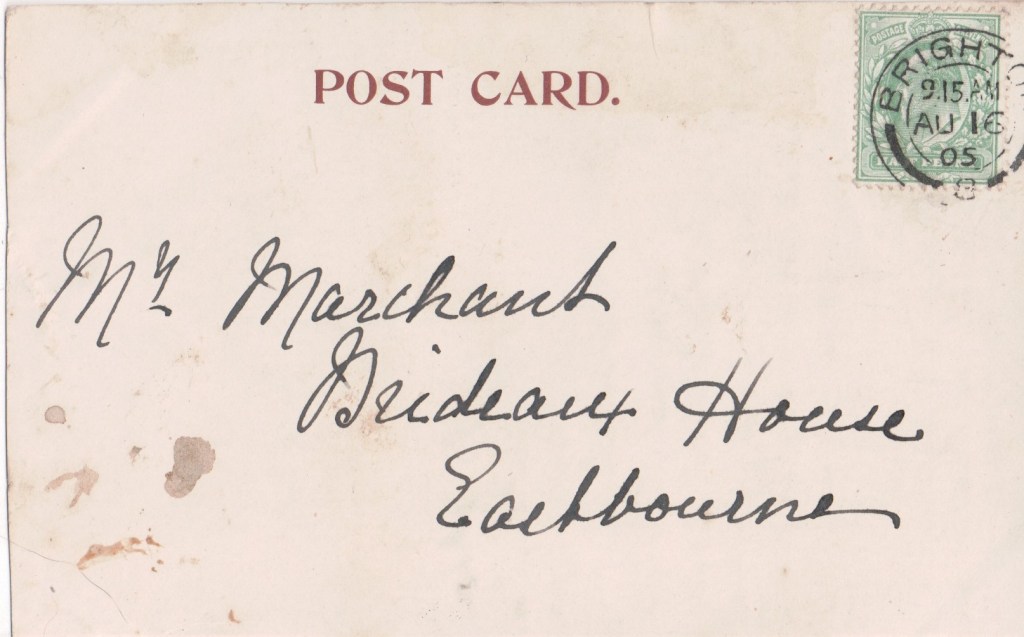 POST CARD.
POSTAGE
BRIGHTO
9.15.AM
AU 16
05
8
Mr Marchant
Prideaux House
Eastbourne